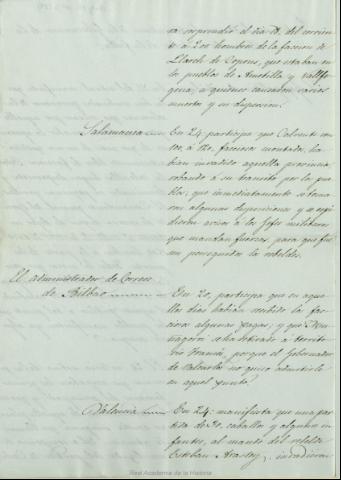 va sorprendió el dia 18, del corrien-
te á 200 hombres de la faccion de
Llarch de Copons, que estaban en
los pueblos de Ametlla y Vallfo-
gona, á quienes causaron varios
muertos y su dispersion.
Salamanca En 24, participa que Calvente con
100, á 120, facciosos montados, ha-
bian invadido aquella provincia,
robando á su transito por los pue-
blos, que inmediatamente se toma-
ron algunas disposiciones y se espi-
dieron avisos á los Jefes militares
que mandan fuerzas, para que fue-
sen perseguidos los rebeldes.
El administrador de Correos
de Bilbao En 20, participa que en aque-
llos dias habian recibido los fac-
ciosos algunas pagas, y que
se ha retirado á territo-
rio frances, porque el Gobernador
de Valcarlos no quiso admitirle
en aquel punto.
Valencia En 24: manifiesta que una par-
tida de 30, caballos y algunos in-
fantes, al mando del rebelde
Esteban Arastey, invadieron
Real Academia de la Historia